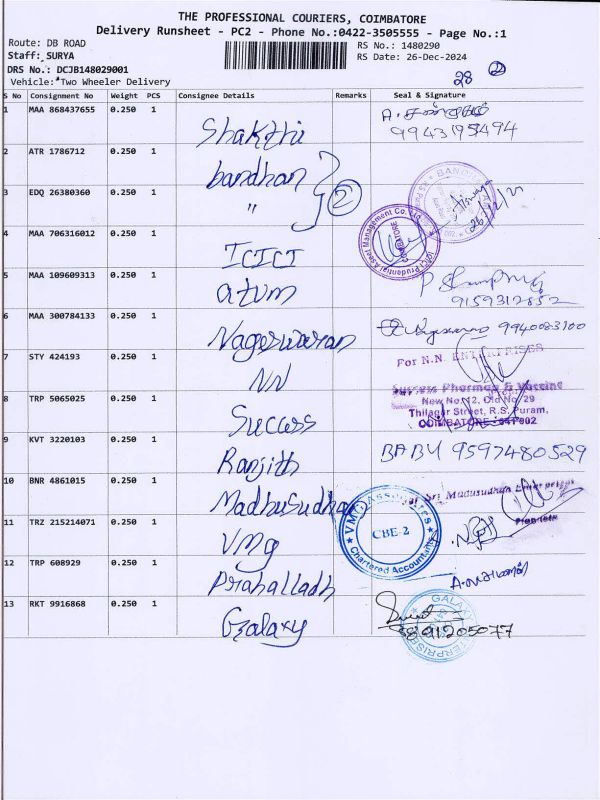 THE PROFESSIONAL COURIERS, COIMBATORE
Delivery Runsheet - PC2 - Phone No.:0422-3505555 - Page No.:1
Route: DB ROAD
RS No.: 1480290
Staff: SURYA
RS Date: 26-Dec-2024
DRS No.: DCJB148029001
28 2
Vehicle: Two Wheeler Delivery
S No Consignment No Weight PCS Consignee Details Remarks Seal & Signature
1 MAA 868437655 0.250 1 Shakthi
9943195494
2 ATR 1786712 0.250 1 bandhan
2
3 EDQ 26380360 0.250 1 "
4 MAA 706316012 0.250 1 ICICI
ICICI Prudential Asset Management Co. Ltd. COIMBATORE
5 MAA 109609313 0.250 1 atum
9159312852
6 MAA 300784133 0.250 1 Nageswaran
9940083100
7 STY 424193 0.250 1 NN
For N.N. ENTERPRISES
8 TRP 5065025 0.250 1 Success
Success Pharma & Vaccine
New No. 12, Old No. 29
Thilagar Street, R.S. Puram,
COIMBATORE - 641 002
9 KVT 3220103 0.250 1 Ranjith BABU 9597480529
10 BNR 4861015 0.250 1 Madhusudhan
Sri Madusudhan Enterprises
Proprietor
11 TRZ 215214071 0.250 1 VMG
VMG ASSOCIATES CBE-2 Chartered Accountants
12 TRP 608929 0.250 1 Prahalladh
13 RKT 9916868 0.250 1 Galaxy
GALAXY ENTERPRISES
8891205077